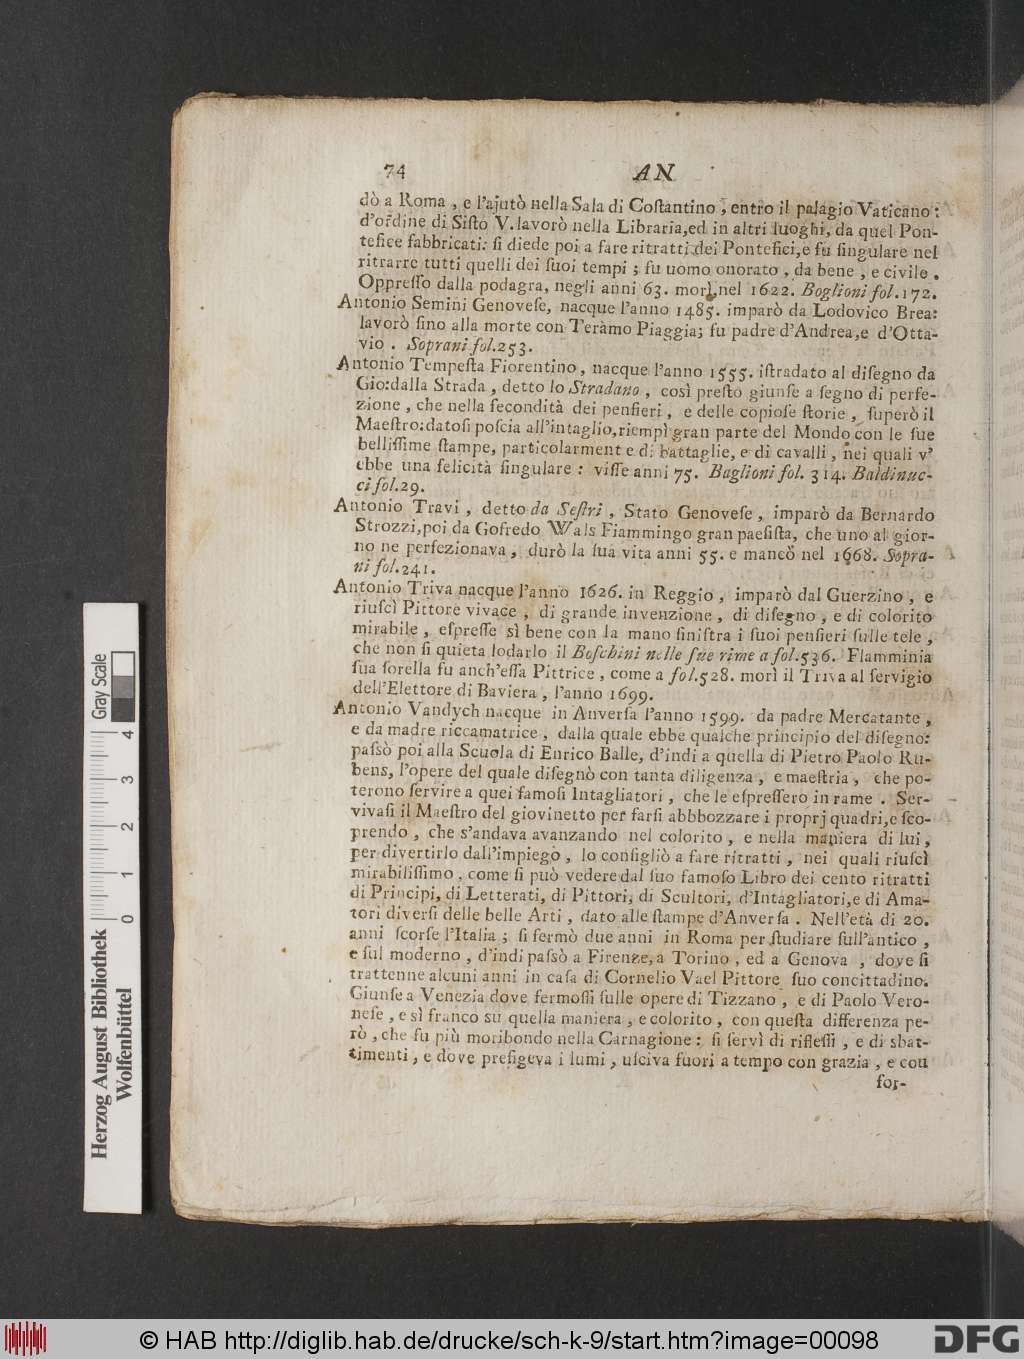 74 AN
dò a Roma , e l'ajutò nella Sala di Coſtantino , entro il palagio Vaticano :
d'ordine di Siſto V. lavorò nella Libraria,ed in altri luoghi, da quel Pon-
tefice fabbricati: ſi diede poi a fare ritratti dei Pontefici,e fu ſingulare nel
ritrarre tutti quelli dei ſuoi tempi ; fu uomo onorato , da bene , e civile .
Oppreſſo dalla podagra, negli anni 63. morì nel 1622. Boglioni fol.172.
Antonio Semini Genoveſe, nacque l'anno 1485. imparò da Lodovico Brea:
lavorò ſino alla morte con Teramo Piaggia; fu padre d'Andrea,e d'Otta-
vio . Soprani fol.253.
Antonio Tempeſta Fiorentino , nacque l'anno 1555. iſtradato al diſegno da
Gio:dalla Strada , detto lo Stradano , così preſto giunſe a ſegno di perfe-
zione , che nella ſecondità dei penſieri , e delle copioſe ſtorie , ſuperò il
Maeſtro:datoſi poſcia all'intaglio,riempì gran parte del Mondo con le ſue
belliſſime ſtampe, particolarment e di battaglie, e di cavalli , nei quali v'
ebbe una felicità ſingulare : viſſe anni 75. Baglioni fol. 314. Baldinuc-
ci fol.29.
Antonio Travi , detto da Seſtri , Stato Genoveſe , imparò da Bernardo
Strozzi,poi da Gofredo Wals Fiammingo gran paeſiſta, che uno al gior-
no ne perfezionava , durò la ſua vita anni 55. e mancò nel 1668. Sopra-
ni fol.241.
Antonio Triva nacque l'anno 1626. in Reggio , imparò dal Guerzino , e
riuſcì Pittore vivace , di grande invenzione , di diſegno , e di colorito
mirabile , eſpreſſe sì bene con la mano ſiniſtra i ſuoi penſieri ſulle tele ,
che non ſi quieta lodarlo il Boſchini nelle ſue rime a fol.536. Flamminia
ſua ſorella fu anch'eſſa Pittrice , come a fol.528. morì il Triva al ſervigio
dell'Elettore di Baviera , l'anno 1699.
Antonio Vandych nacque in Anverſa l'anno 1599. da padre Mercatante ,
e da madre riccamatrice , dalla quale ebbe qualche principio del diſegno:
paſsò poi alla Scuola di Enrico Balle, d'indi a quella di Pietro Paolo Ru-
bens, l'opere del quale diſegnò con tanta diligenza , e maeſtria , che po-
terono ſervire a quei famoſi Intagliatori , che le eſpreſſero in rame . Ser-
vivaſi il Maeſtro del giovinetto per farſi abbbozzare i proprj quadri,e ſco-
prendo , che s'andava avanzando nel colorito , e nella maniera di lui ,
per divertirlo dall'impiego , lo conſigliò a fare ritratti , nei quali riuſcì
mirabiliſſimo , come ſi può vedere dal ſuo famoſo Libro dei cento ritratti
di Principi, di Letterati, di Pittori, di Scultori, d'Intagliatori,e di Ama-
tori diverſi delle belle Arti , dato alle ſtampe d'Anverſa . Nell'età di 20.
anni ſcorſe l'Italia ; ſi fermò due anni in Roma per ſtudiare ſull'antico ,
e ſul moderno , d'indi paſsò a Firenze, a Torino , ed a Genova , dove ſi
trattenne alcuni anni in caſa di Cornelio Vael Pittore ſuo concittadino.
Giunſe a Venezia dove fermoſſi ſulle opere di Tizzano , e di Paolo Vero-
neſe , e sì franco su quella maniera , e colorito , con queſta differenza pe-
rò , che fu più moribondo nella Carnagione : ſi ſervì di rifleſſi , e di sbat-
timenti , e dove prefigeva i lumi , uſciva fuori a tempo con grazia , e con
for-
Gray Scale
0 1 2 3 4
Herzog August Bibliothek
Wolfenbüttel
© HAB http://diglib.hab.de/drucke/sch-k-9/start.htm?image=00098
DFG